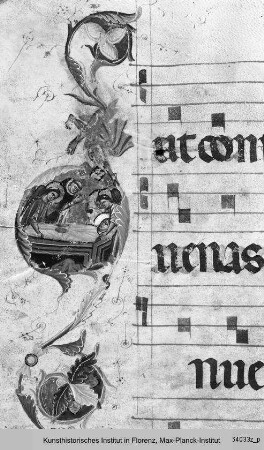 at com
nenas
nue
Kunsthistorisches Institut in Florenz, Max-Planck-Institut